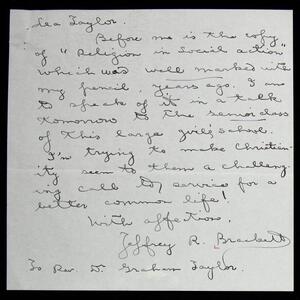 Dea Taylor.
Before me is the copy
of "Religion in Social action"
which was well marked with
my pencil, years ago. I am
to speak of it in a talk
tomorrow to the senior class
of this large girls school.
I'm trying to make Christian-
ity seem to them a challeng-
ing call to service for a
better common life!
With affection,
Jeffrey R. Brackett
To Rev. D. Graham Taylor.